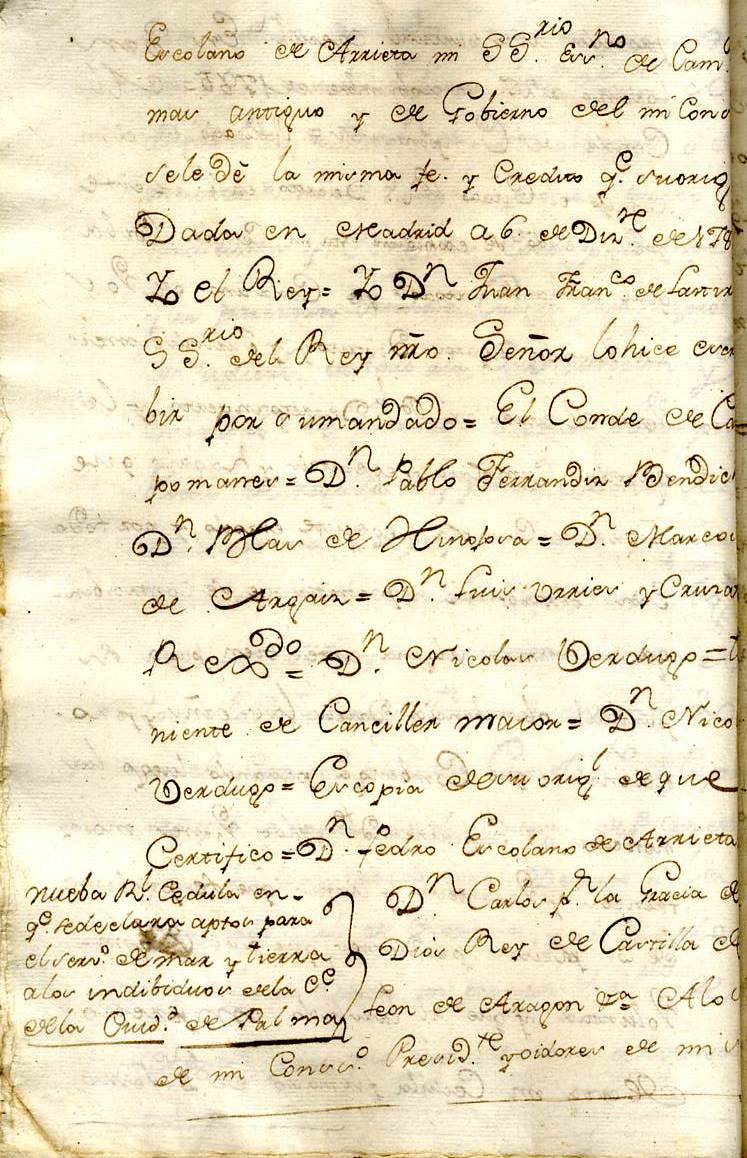 Escolano de Arrieta mi SS.rio Es.no de Cam
mas antiguo y de Gobierno del mi Cons
se le dé la misma fe. y Credito q.e su orig
Dada en Madrid a 6 de Diz.re de 178
Yo el Rey= Yo D.n Juan Fran.co de Lastir
SS.rio del Rey nro. Señor lo hice escri
bir por su mandado= El Conde de Ca
pomanes= D.n Pablo Ferrandiz Bendic
D.n Blas de Hinojosa= D.n Marcos
de Argaiz= D.n Luis Urries y Cruza
Rexdo= D.n Nicolas Berdugo= te
niente de Canciller maior= D.n Nico
Verdugo= Es copia de su orig.l de que
Certifico= D.n Pedro Escolano de Arrieta
nueba Rl. Cedula en
q.e se declara aptos para
el serv.o de mar y tierra
a los indibiduos de la C.e
de la Ciud.d de Palma
D.n Carlos p.r la Gracia de
Dios Rey de Castilla de
Leon de Aragon &.a A los
de mi Cons.o Presid.te y oidores de mis